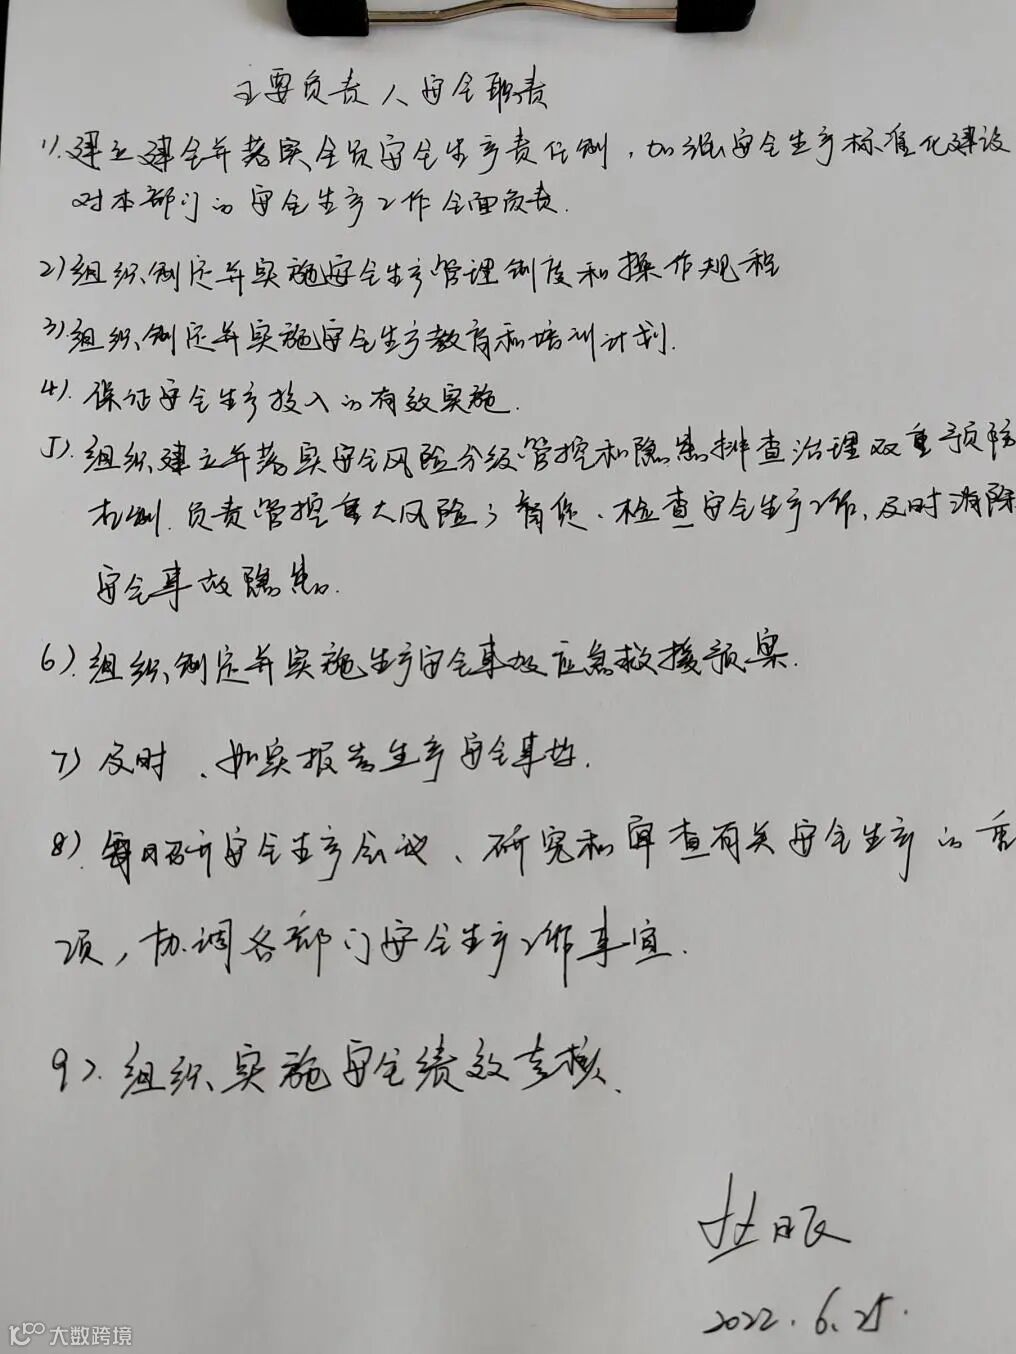 主要负责人安全职责
1).建立建全并落实全员安全生产责任制,加强安全生产标准化建设
对本部门的安全生产工作全面负责.
2)组织制定并实施安全生产管理制度和操作规程
3).组织制定并实施安全生产教育和培训计划.
4).保证安全生产投入的有效实施.
5).组织建立并落实安全风险分级管控和隐患排查治理双重预防
机制.负责管控重大风险;督促、检查安全生产工作,及时消除
安全事故隐患.
6).组织制定并实施生产安全事故应急救援预案.
7)及时、如实报告生产安全事故.
8)每月召开安全生产会议、研究和审查有关安全生产的重
项,协调各部门安全生产工作事宜.
9).组织实施安全绩效考核.
2022.6.25.
大数跨境